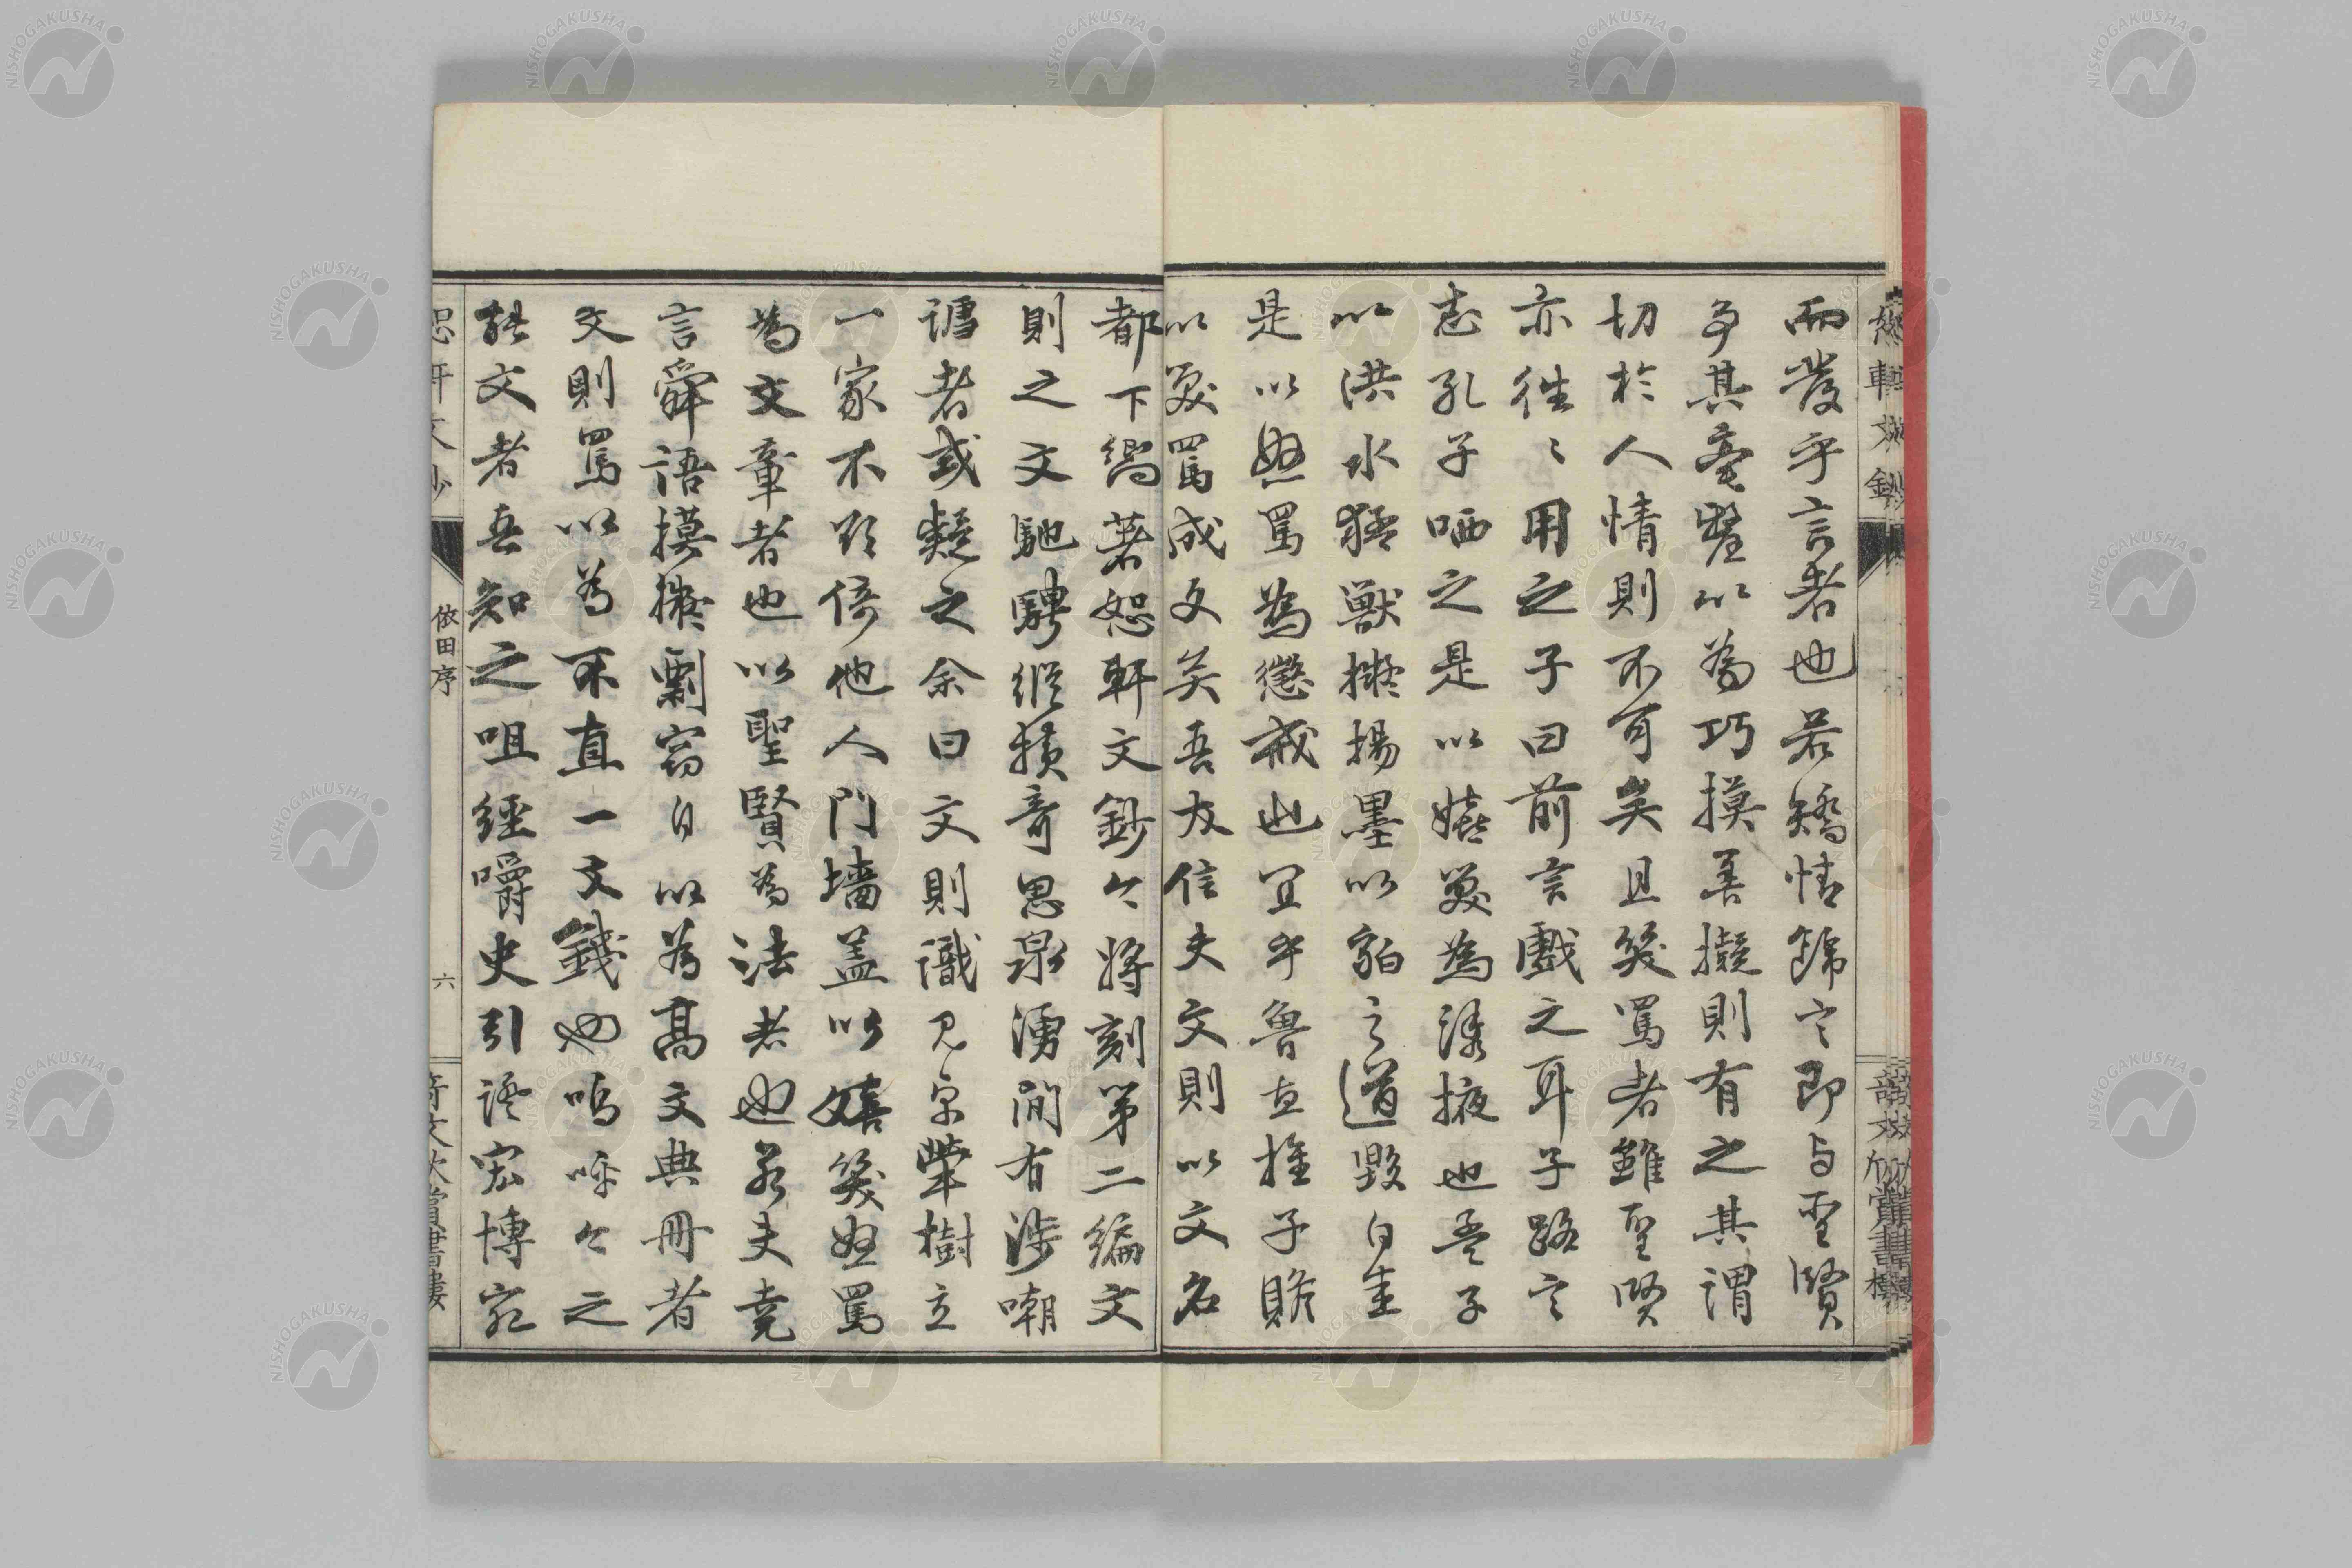 而發乎言者也若矯情飾言即与聖賢
爭其毫釐以為巧摸善擬則有之其謂
切於人情則不可矣且笑罵者雖聖賢
亦徃〻用之子曰前言戲之耳子路言
志孔子哂之是以嬉笑為誘掖也孟子
以洪水猛獸擬揚墨以貉之道毀白圭
是以怒罵為懲戒也宜乎魯直推子瞻
以笑罵成文矣吾友信夫文則以文名
都下嚮著恕軒文鈔今將刻第二編文
則之文馳騁縱横奇思泉湧間有涉嘲
謔者或疑之余曰文則識見宗犖樹立
一家不欲倚他人門墻盖以嬉笑怒罵
為文章者也以聖賢為法者也若夫堯
言舜語摸擬剽窃自以為高文典冊者
文則罵以為不直一文錢也嗚呼今之
能文者吾知之咀經嚼史引證宏博宛
恕軒文鈔
依田序
六
奇文欣賞書樓
NISHOGAKUSHA